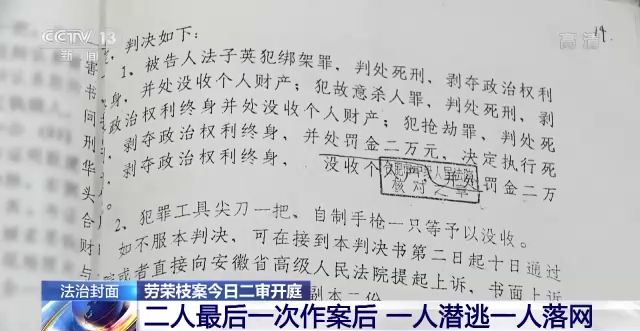 CCTV 13
新闻
高清
14
判决如下:
1、被告人法子英犯绑架罪,判处死刑,剥夺政治权利
身,并处没收个人财产;犯故意杀人罪,判处死刑,剥
政治权利终身并处没收个人财产;犯抢劫罪,判处死
剥夺政治权利终身,并处罚金二万元,决定执行死
剥夺政治权利终身,没收个人财产,并处罚金二万
核对之章
2、犯罪工具尖刀一把、自制手枪一只等予以没收。
如不服本判决,可在接到本判决书第二日起十日通过
或者直接向安徽省高级人民法院提起上诉,书面上诉
副本二份
害
书
同
刑
华
头
合
财
与
法治封面
劳荣枝案今日二审开庭
二人最后一次作案后 一人潜逃一人落网